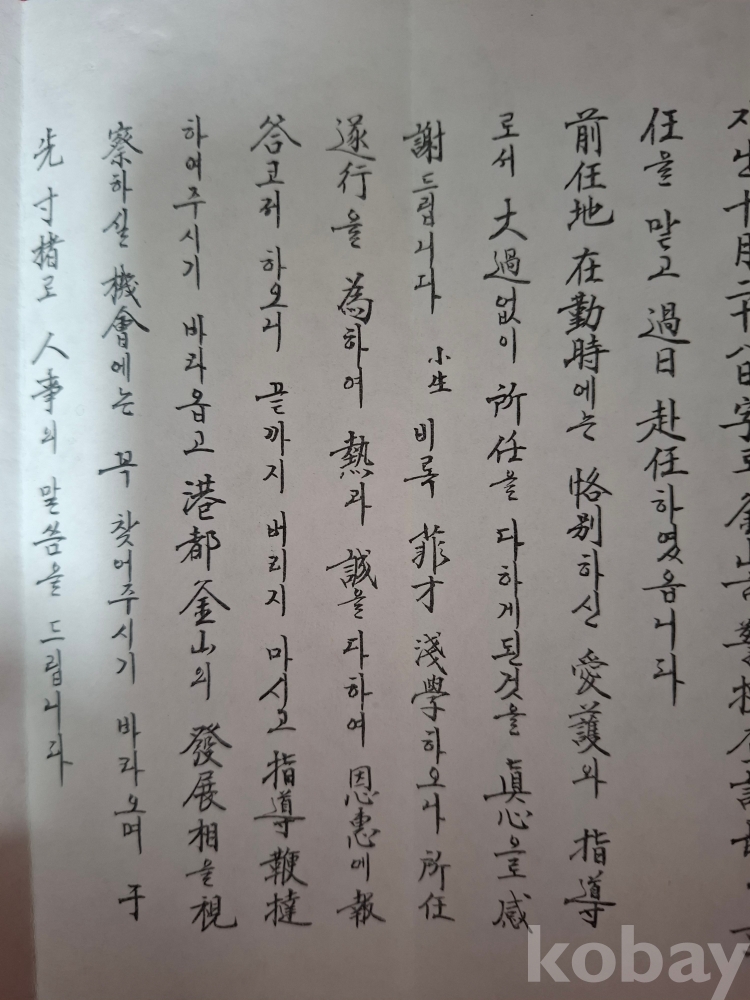 지난 十月二十八日字로 釜山
任을 맡고 過日 赴任하였읍니다
前任地 在勤時에는 恪別하신 愛護와 指導
로서 大過없이 所任을 다하게된것을 眞心으로 感
謝드립니다 小生 비록 菲才 淺學하오나 所任
遂行을 爲하여 熱과 誠을 다하여 恩惠에 報
答코저 하오니 끝까지 버리지 마시고 指導鞭撻
하여주시기 바라옵고 港都釜山의 發展相을 視
察하실 機會에는 꼭 찾어주시기 바라오며 于
先 寸楮로 人事의 말씀을 드립니다
kobay